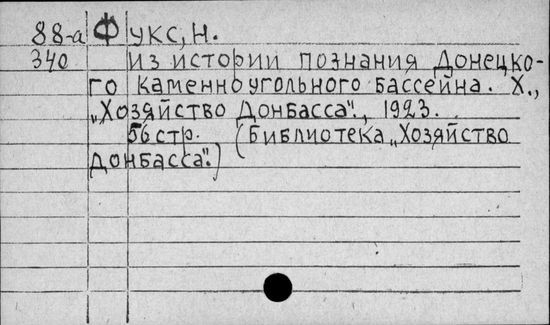 88-а Фукс, Н.
340 Из истории познания Донецко-
го каменноугольного бассейна. Х.,
„Хозяйство Донбасса"., 1923.
56 стр. (Библиотека „Хозяйство
Донбасса".)